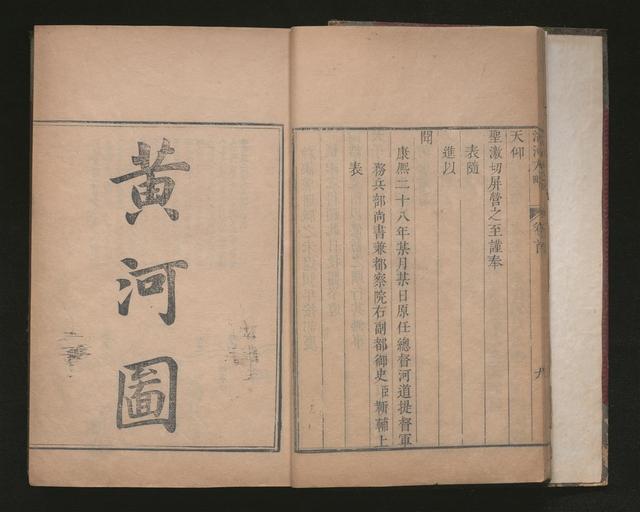 天仰
聖激切屏營之至謹奉
表隨
進以
聞
康熙二十八年某月某日原任總督河道提督軍
務兵部尚書兼都察院右副都御史臣靳輔上
表
卷首
九
黃河圖